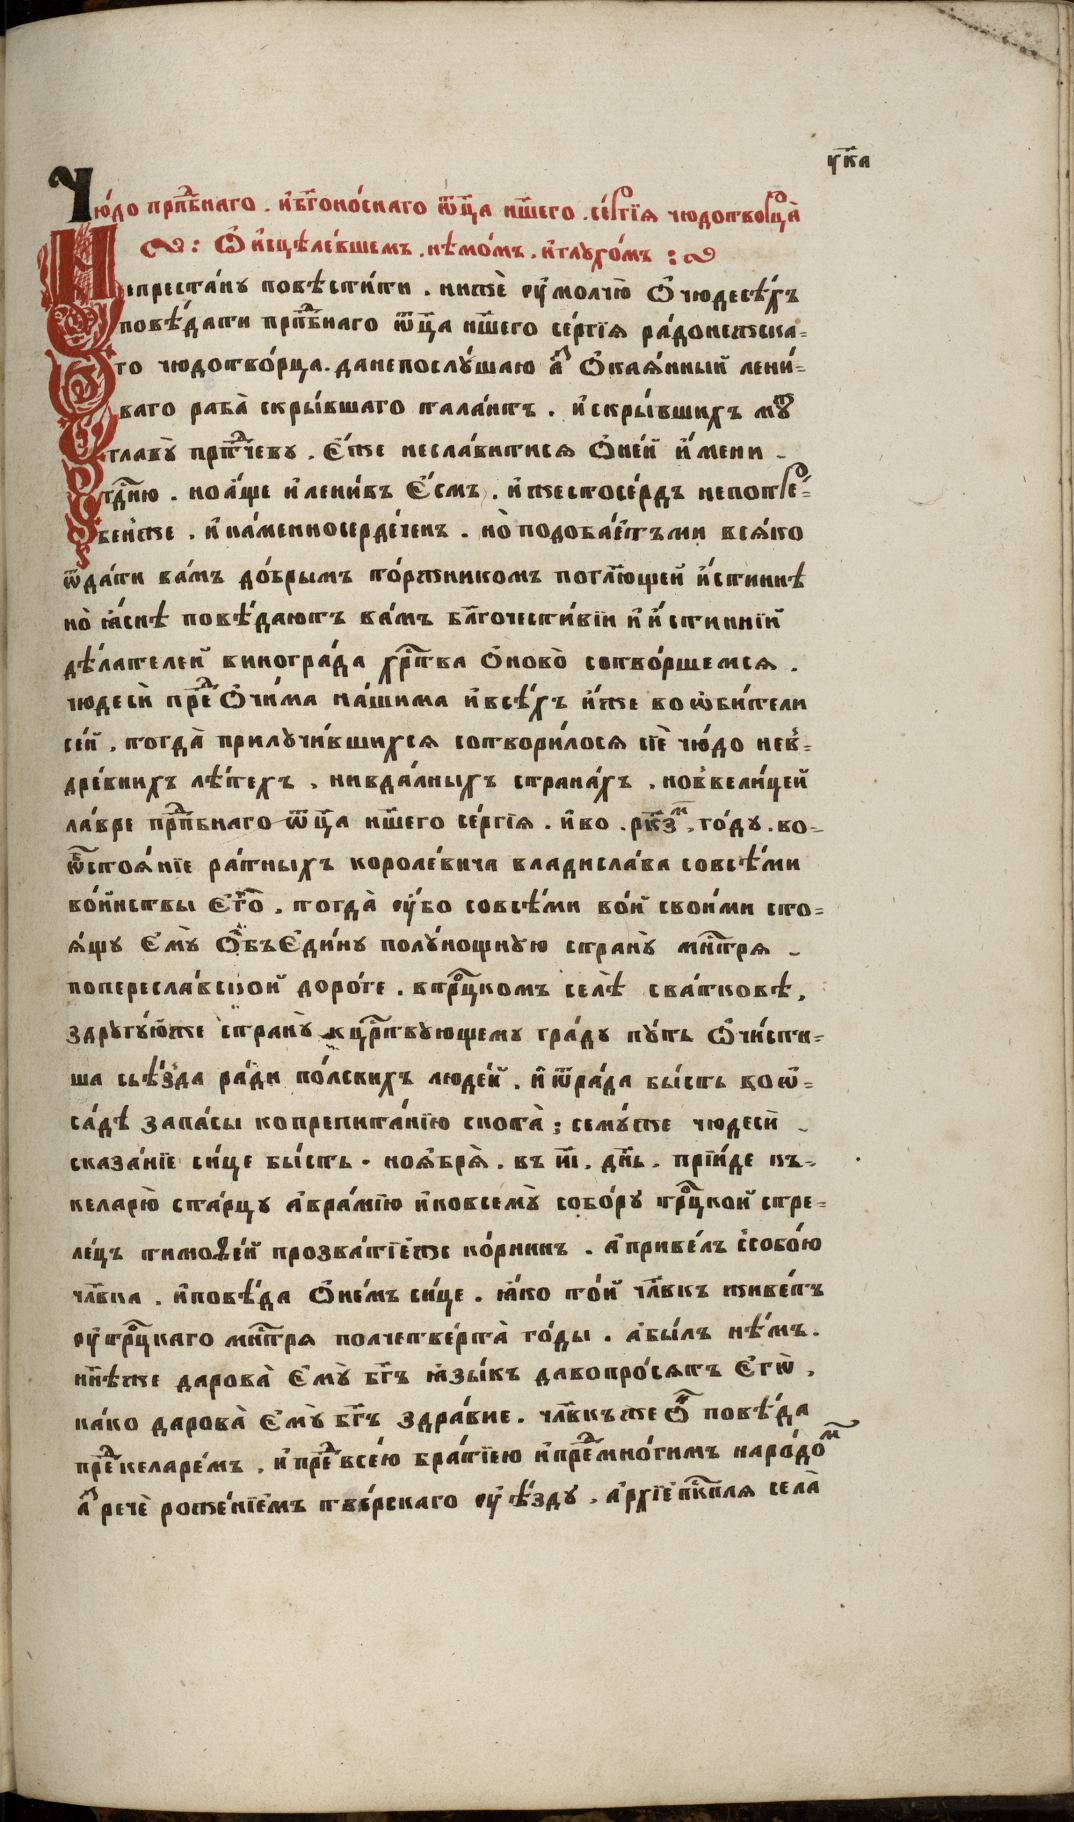 ук҃а
Чю́до прпⷣбнаго . и҆бг҃оно́снаго ѿц҃а нш҃его . се́ргїѧ чюдотворца̀
Ѽ и҆сцѣле́вшемъ . нѣмо́мъ . и҆глухо́мъ :
Непреста́ну повѣсти́ти . нижѐ ѹ҆молчю̀ Ѽ чюдесѣ́хъ
повѣ́дати прпⷣбнаго ѿц҃а нш҃его се́ргїѧ ра́донежска-
го чюдотво́рца . данепослу́шаю а҆ⷨ Ѻ҆каѧ́нный лени́-
ваго раба̀ скры́вшаго тала́нтъ . и҆скры́вшихъ мⷣу
главу̀ прⷣтчеву . Є҆́же неславитисѧ Ѽне́й и҆́мени -
гдⷭ҇ню . но а҆́ще и҆лени́въ Є҆́смъ . и҆жестосе́рдъ непотре́-
бенже . и҆ка́менносерде́ченъ . но̀ подоба́етъми всѧ́ко
ѿда́ти ва́мъ до́брымъ то́ржникомъ погл҃ющей и҆́стиннѣ
но̀ ꙗ҆́снѣ повѣ́даютъ ва́мъ бл҃гочести́вїи и҆ и҆́стиннїй
дѣ́лателей виногра́да хрⷭ҇това Ѽново̀ сотво́ршемсѧ .
чюдесѝ преⷣ Ѻ҆чи́ма на́шима и҆всѣ́хъ и҆́же воѡби́тели
се́й . тогда̀ прилучи́вшихсѧ сотвори́лосѧ сїѐ чю́до нев̾-
дре́внихъ лѣ́техъ . нивда́лныхъ страна́хъ . нов̾вели́цей
ла́вре прпⷣбнаго ѿц҃а нш҃его се́ргїѧ . и҆во . рк҃зⷨ . го́ду . во-
ѡ҆стоѧ́нїе ра́тныхъ короле́вича владисла́ва совсѣ́ми
во́йнствы Є҆гѡ̀ . тогда̀ ѹ҆́бо совсѣ́ми во́й свои́ми сто-
ѧ́щу Є҆му̀ Ѻ҆бъЄди́ну полу́нощную страну̀ мнⷭ҇трѧ -
попересла́вской доро́ге . втрⷪ҇цкомъ селѣ̀ сва́тковѣ ,
здругу́юже страну̀ кцрⷭ҇твующему гра́ду пу́ть Ѡ҆чи́сти-
ша сьѣ́зда ра́ди по́лскихъ люде́й . и҆ ѿра́да бы́сть воѡ҆-
са́дѣ запа́сы копрепита́нїю скота̀ ; сему́же чюдесѝ -
сказа́нїе си́це бы́сть . ноѧ҆брѧ̀ . въ і҃і . дн҃ь . прїи́де къ-
келарю̀ ста́рцу а҆вра́мїю и҆ковсему̀ собо́ру трⷪ҇цкой стре-
ле́цъ тимоѳе́й прозва́нїемже ко́рнинъ . а҆приве́лъ ссобо́ю
чл҃вка . и҆повѣ́да Ѽне́мъ си́це . ꙗ҆́ко то́й чл҃вкъ живе́тъ
ѹ҆трⷪ҇цкаго мнⷭ҇трѧ полчетве́рта го́ды . а҆бы́лъ нѣ́мъ .
нн҃ѣже дарова̀ Є҆му̀ бг҃ъ ꙗ҆зы́къ давопро́сѧтъ Є҆гѡ̀ ,
ка́ко дарова̀ Є҆му̀ бг҃ъ здра́вие . чл҃вкъже ѿ повѣ́да
преⷣкеларе́мъ . и҆преⷣвсе́ю бра́тїею и҆преⷣмно́гимъ наро́доⷨ
а҆ⷨ речѐ роже́нїемъ тве́рскаго ѹ҆ѣ́зду . а҆рхїепⷭ҇кплѧ села̀